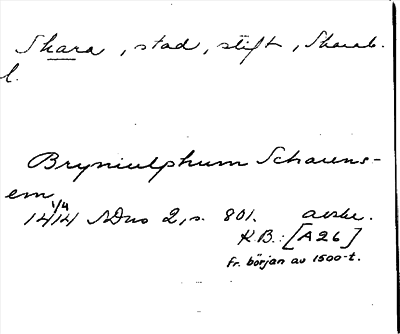 Skara, stad, stift, Skarab.
l.
Bryniulphum Scharens-
em
14 1/4 14 SDns 2, s. 801. avskr.
K.B.: [A 26]
fr. början av 1500-t.